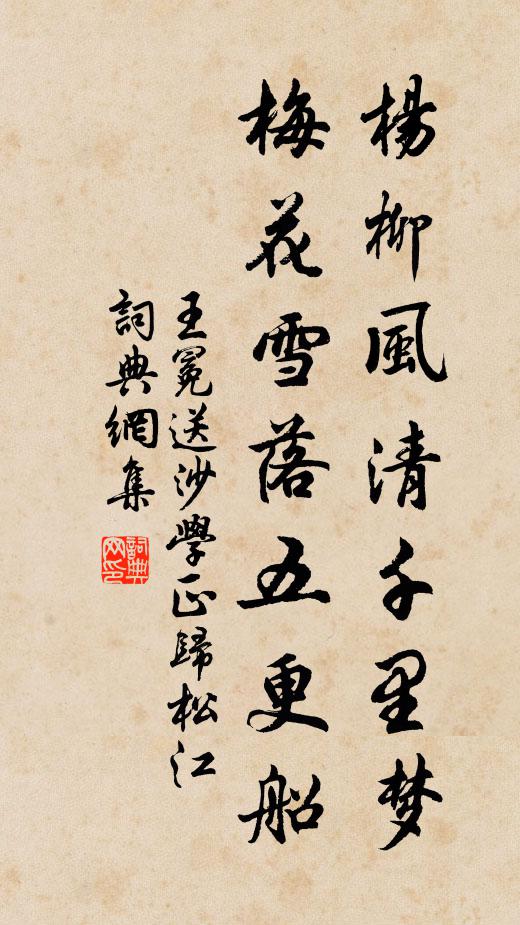 楊柳風清千里梦
梅花雪落五更船
王冕送沙學正歸松江
詞典網集
詞典网印